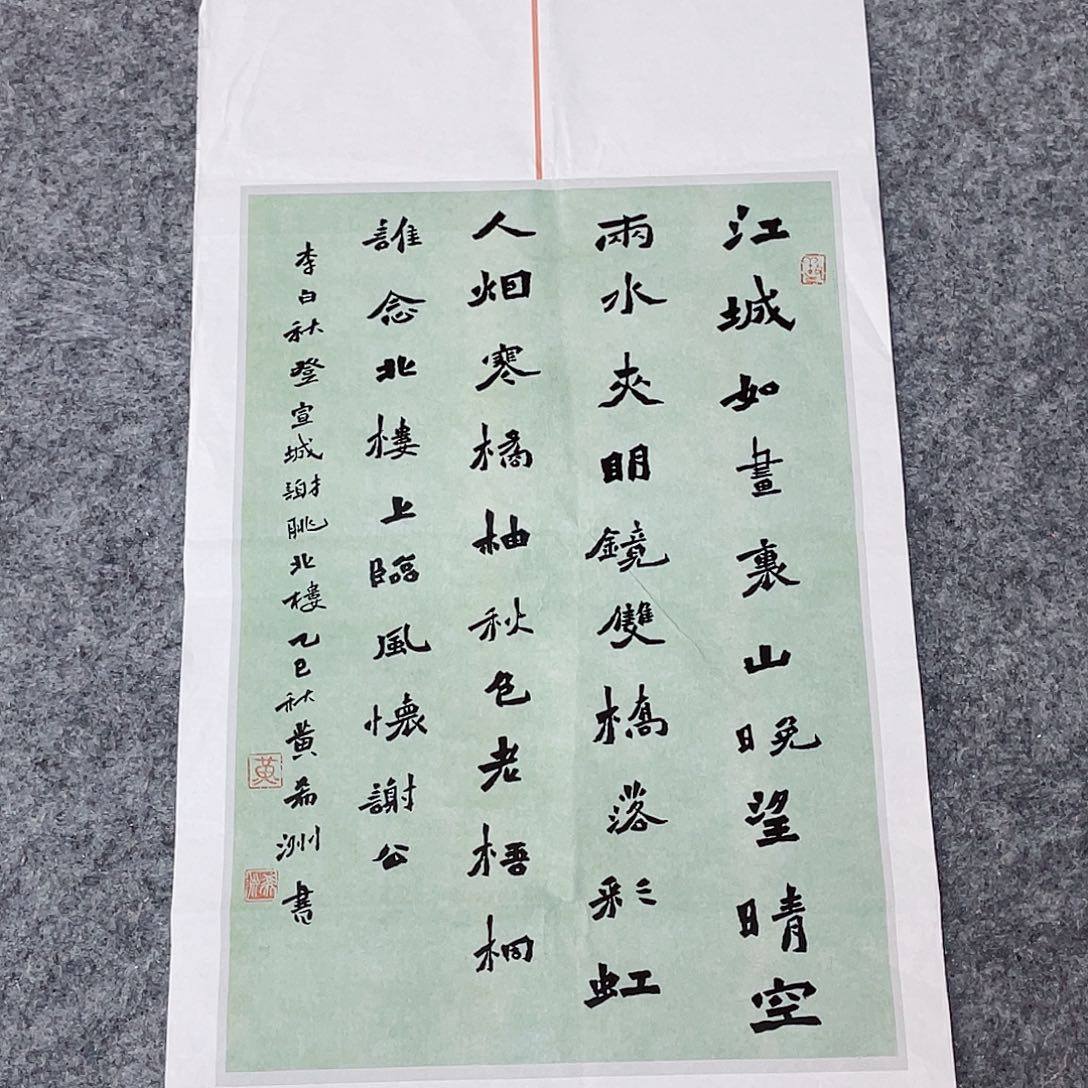 江城如畫裏山晚望晴空
兩水夾明鏡雙橋落彩虹
人烟寒橘柚秋色老梧桐
誰念北樓上臨風懷謝公
李白秋登宣城謝朓北樓乙巳秋黄希洲書
黄